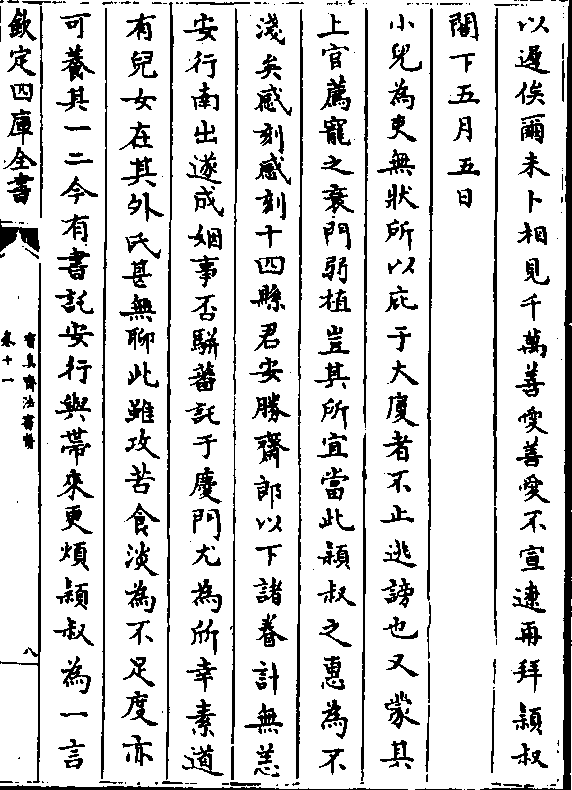 以遲俟爾未卜相見千萬善愛善愛不宣逮再拜穎叔
閣下五月五日
小兒為吏無狀所以庇于大廈者不止逃謗也又蒙其
上官薦寵之衰門弱植豈其所宜當此穎叔之惠為不
淺矣感刻感刻十四縣君安勝齋郎以下諸眷計無恙
安行南出遂成姻事否駢蕃託于慶門尤為所幸素道
有兒女在其外氏甚無聊此雖攻苦食淡為不足度亦
可養其一二今有書託安行與帶來更煩穎叔為一言
欽定四庫全書
寶真齋法書贊
卷十一
八